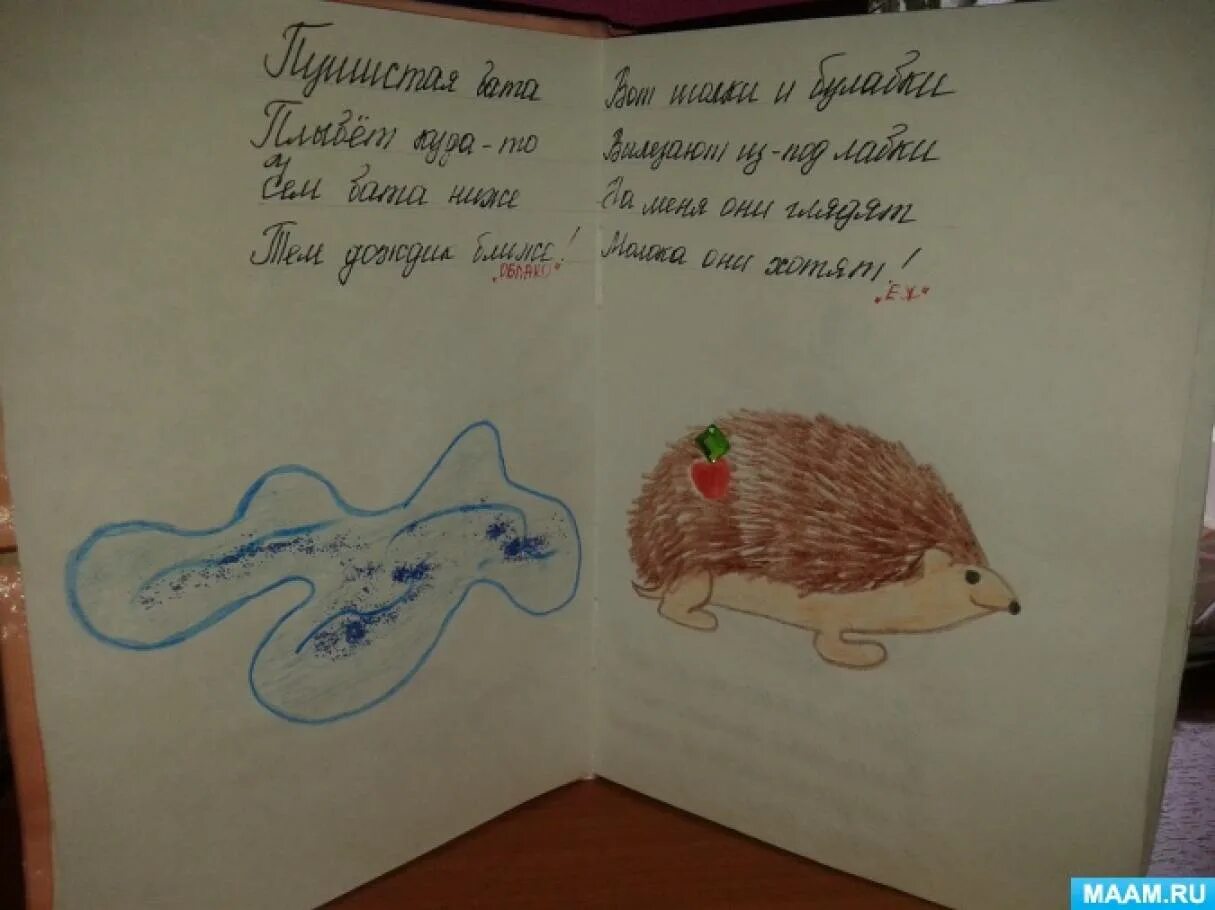 Пушистая вата
Плывёт куда-то
Чем вата ниже
Тем дождик ближе!
"ОБЛАКО"
Вот иголки и булавки
Вылезают из-под лавки
На меня они глядят
Молока они хотят!
"ЕЖ"
MAAM.RU